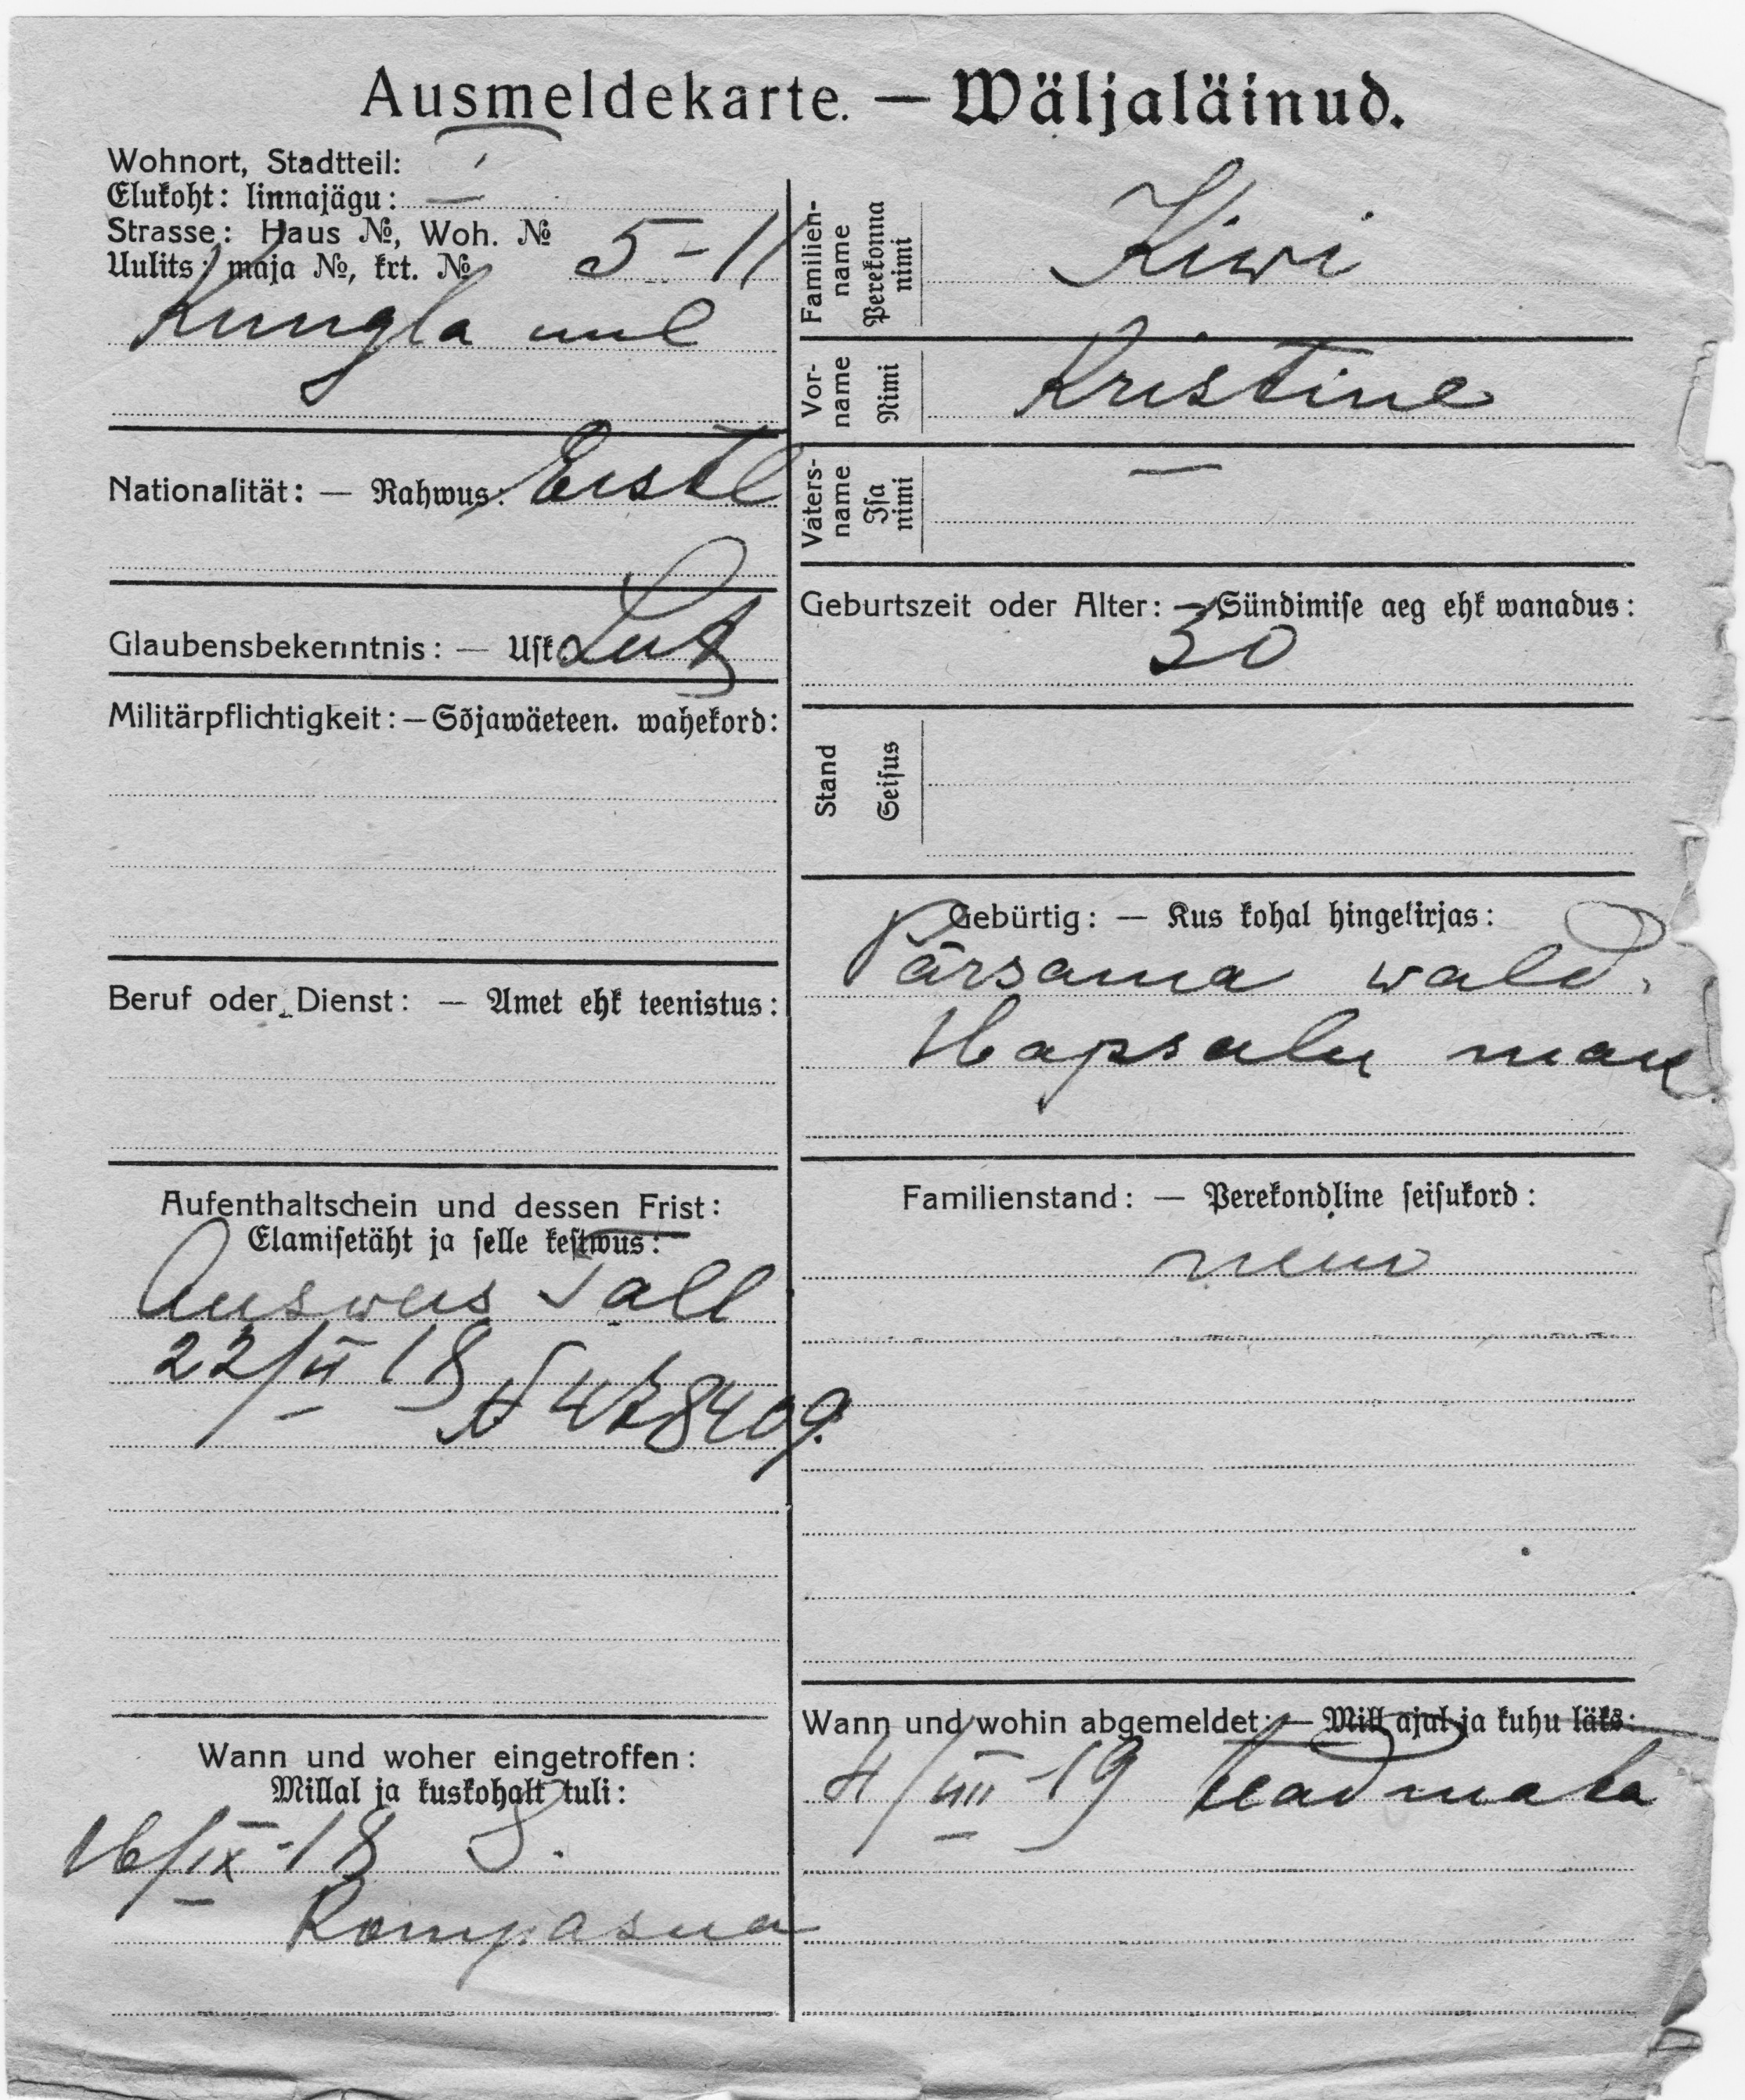 Ausmeldekarte. — Wäljaläinud.
Wohnort, Stadtteil:
Elukoht: linnajägu: I
Strasse: Haus №, Woh. №
Uulits: maja №, krt. № 5-11
Kungla uul
Nationalität: — Rahwus: Eestl
Glaubensbekenntnis: — Usk: Lut
Militärpflichtigkeit: — Sõjawäeteen. wahekord:
Beruf oder Dienst: — Amet ehk teenistus:
Aufenthaltschein und dessen Frist:
Elamisetäht ja selle kestwus:
Ausweis Tall
22/VI 18
Wann und woher eingetroffen:
Millal ja kuskohalt tuli:
16/IX-18 8.
Kompasna
Familien-
name
Perekonna
nimi
Kiwi
Vor-
name
Nimi
Kristine
Vaters-
name
Isa
nimi
—
Geburtszeit oder Alter: — Sündimise aeg ehk wanadus:
30
Stand
Seisus
Gebürtig: — Kus kohal hingekirjas:
Pärsama wald.
Hapsalu mak.
Familienstand: — Perekondline seisukord:
neiu
Wann und wohin abgemeldet: — Mill ajal ja kuhu läks:
4/VIII-19 teadmata